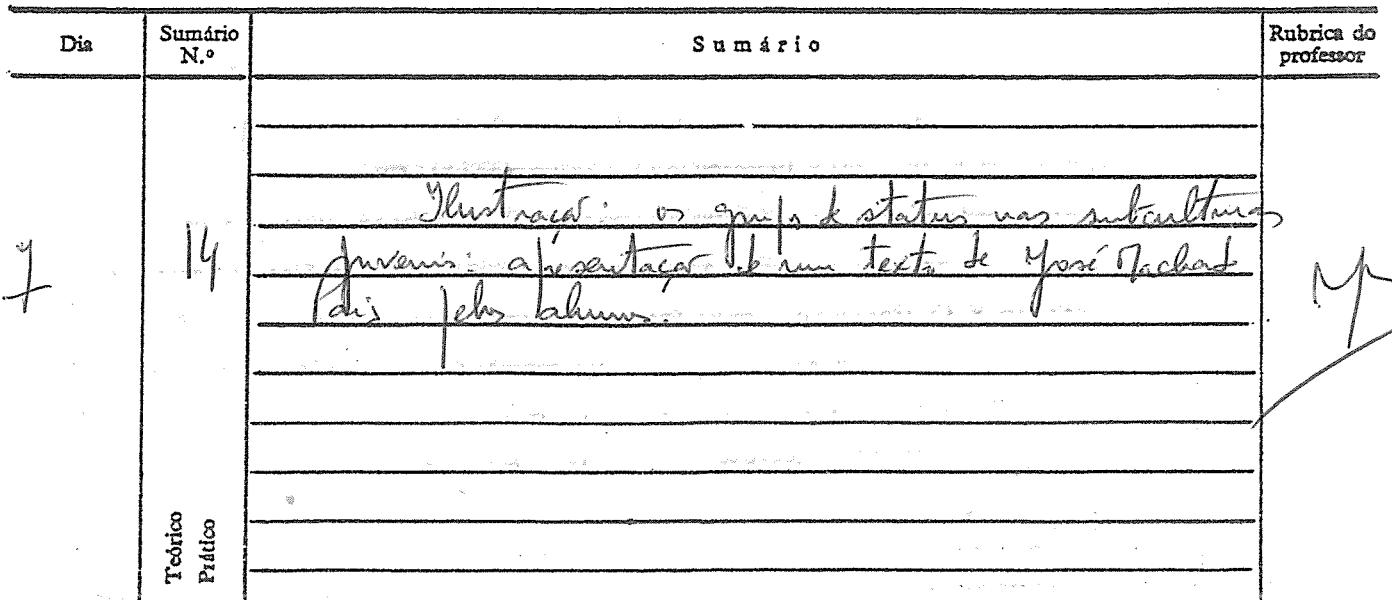 Dia
Sumário N.º
Sumário
Rubrica do professor
7
14
Ilustração: os grupos de status nas subculturas
juvenis: apresentação de um texto de José Machado
Pais pelos alunos.
Teórico
Prático